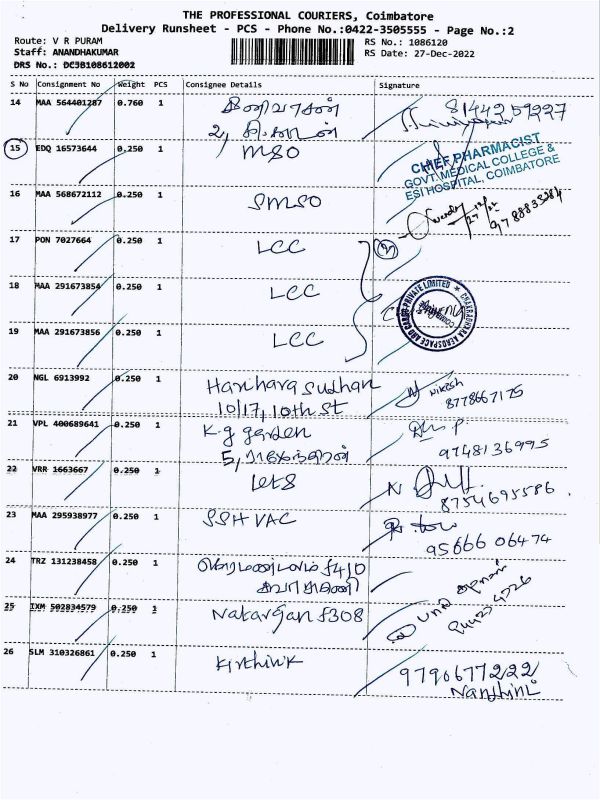 THE PROFESSIONAL COURIERS, Coimbatore
Delivery Runsheet - PCS - Phone No.:0422-3505555 - Page No.:2
Route: V R PURAM
RS No.: 1086120
Staff: ANANDHAKUMAR
RS Date: 27-Dec-2022
DRS No.: DC3B108612002
S No Consignment No Weight PCS Consignee Details Signature
14 MAA 564401287 0.760 1 8144259227
2,
15 EDQ 16573644 0.250 1 MSO
CHIEF PHARMACIST
GOVT. MEDICAL COLLEGE &
ESI HOSPITAL, COIMBATORE
16 MAA 568672112 0.250 1 SMSO
17 PON 7027664 0.250 1 LCC
18 MAA 291673854 0.250 1 LCC
CHAKRADHARA AEROSPACE AND CARGO PRIVATE LIMITED
19 MAA 291673856 0.250 1 LCC
20 NGL 6913992 0.250 1 Harihara Sudhan Nikesh
10/17, 10th st 8778667175
21 VPL 400689641 0.250 1 K.g garden
5, 9748136995
22 VRR 1663667 0.250 1 8754695586
23 MAA 295938977 0.250 1 SSHVAC
95666 06474
24 TRZ 131238458 0.250 1 f410
25 IXM 502834579 0.250 1 f308
26 SLM 310326861 0.250 1 Kirthink 9790677222
Nanthini